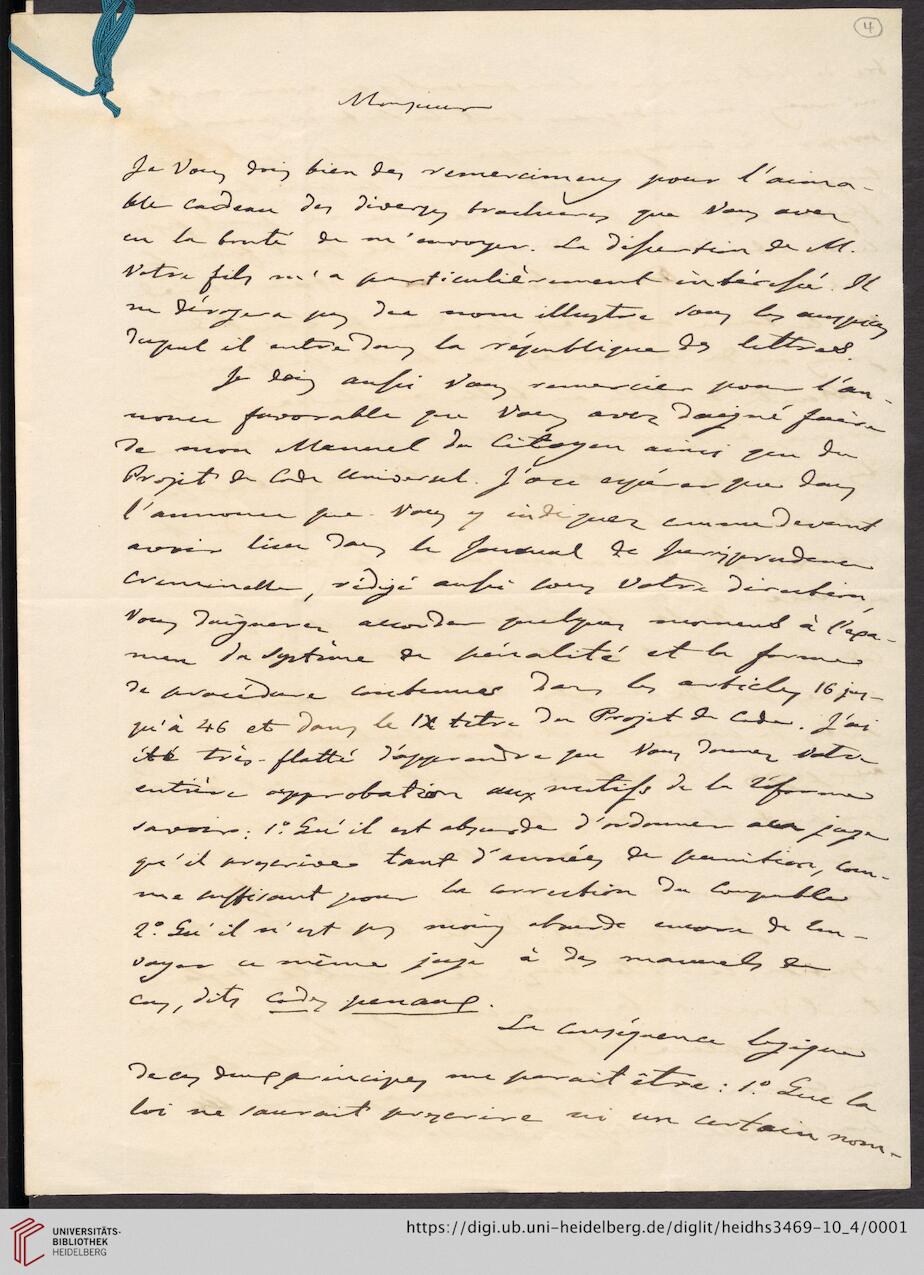 4
Monsieur
Je Vous dois bien des remercimens pour l'aima-
ble cadeau des diverses brochures que Vous avez
eu la bonté de m'envoyer. La dissertion de M.
Votre fils m'a particulièrement intéressé. Il
ne dérogera pas du nom illustre sous les auspices
duquel il entre dans la république des lettres.
Je dois aussi Vous remercier pour l'an-
nonce favorable que Vous avez daigné faire
de mon Manuel du Citoyen ainsi que du
Projet de Code Universel. J'ose espérer que dans
l'annonce que Vous y indiquez comme devant
avoir lieu dans le Journal de Jurisprudence
Criminelle, rédigé aussi sous Votre direction,
Vous daignerez accorder quelques momens à l'exa-
men du système de pénalité et la forme
de procédure contenues dans les articles 16 jus-
qu'à 46 et dans le IX titre du Projet de Code. J'ai
été très-flatté d'apprendre que Vous donnez Votre
entière approbation aux motifs de la réforme
savoir: 1.° Qu'il est absurde d'ordonner au juge
qu'il prescrive tant d'années de punition, com-
me suffisant pour la correction du coupable
2.° Qu'il n'est pas moins absurde encore de ren-
voyer ce même juge à des manuels de
cas, dits codes penaux.
La conséquence logique
de ces deux principes me parait être: 1.° Que la
loi ne saurait prescrire ni un certain nom-
UNIVERSITÄTS-
BIBLIOTHEK
HEIDELBERG
https://digi.ub.uni-heidelberg.de/diglit/heidhs3469-10_4/0001